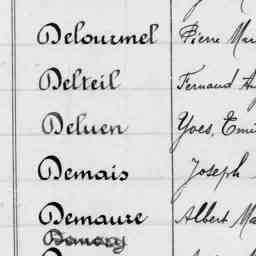 Delourmel Pierre Mar
Delteil Fernand
Deluen Yves, Emi
Demais Joseph
Demaure Albert Ma